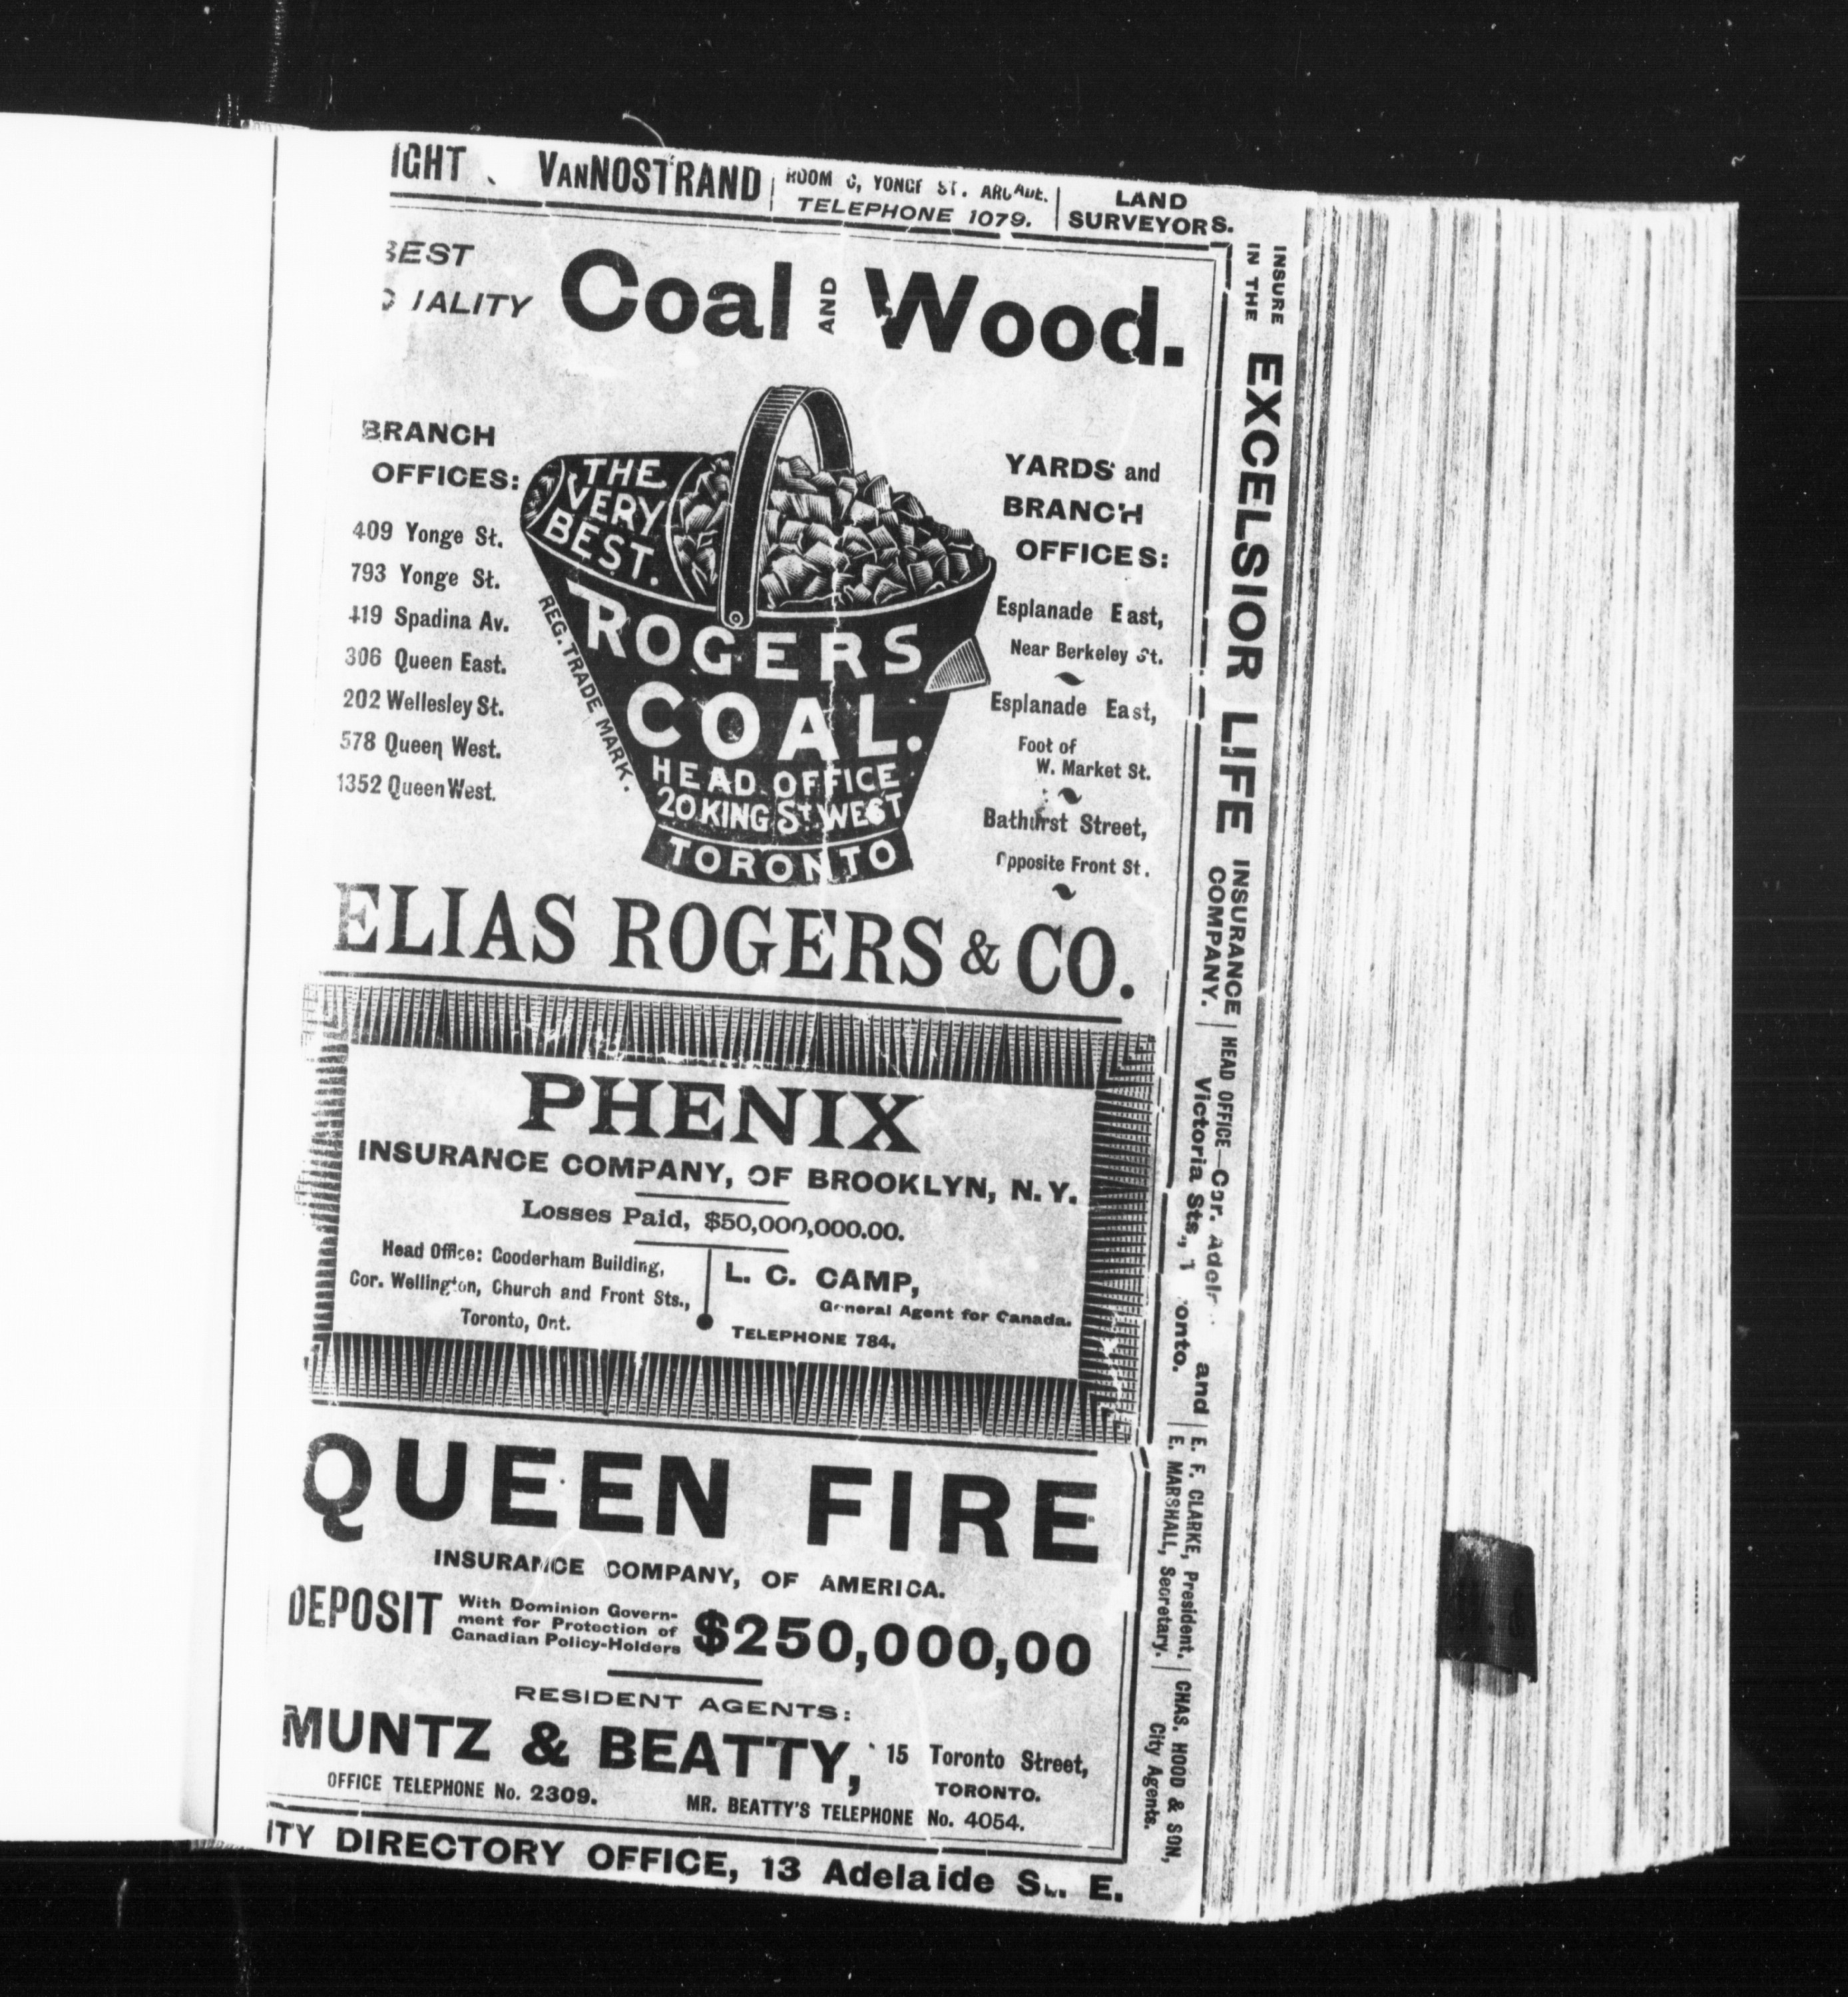 VANNOSTRAND
YONGE ST. ARCADE.
TELEPHONE 1079.
LAND
SURVEYORS.
BEST
Coal AND Wood.
BRANCH
OFFICES:
409 Yonge St.
793 Yonge St.
419 Spadina Av.
306 Queen East.
202 Wellesley St.
578 Queen West.
1352 Queen West.
THE
VERY
BEST.
ROGERS
COAL.
HEAD OFFICE
20 KING ST. WEST
TORONTO
REG. TRADE MARK.
YARDS and
BRANCH
OFFICES:
Esplanade East,
Near Berkeley St.
Esplanade East,
Foot of
W. Market St.
Bathurst Street,
Opposite Front St.
ELIAS ROGERS & CO.
PHENIX
INSURANCE COMPANY, OF BROOKLYN, N.Y.
Losses Paid, $50,000,000.00.
Head Office: Gooderham Building,
Cor. Wellington, Church and Front Sts.,
Toronto, Ont.
L. C. CAMP,
General Agent for Canada.
TELEPHONE 784.
QUEEN FIRE
INSURANCE COMPANY, OF AMERICA.
DEPOSIT
With Dominion Govern-
ment for Protection of
Canadian Policy-Holders
$250,000,00
RESIDENT AGENTS:
MUNTZ & BEATTY, 15 Toronto Street,
TORONTO.
OFFICE TELEPHONE No. 2309.
MR. BEATTY'S TELEPHONE No. 4054.
DIRECTORY OFFICE, 13 Adelaide St. E.
INSURE
IN THE
EXCELSIOR LIFE
INSURANCE
COMPANY.
HEAD OFFICE—Cor. and
Victoria Sts.,
E. F. CLARKE, President.
E. MARSHALL, Secretary.
CHAS. HOOD & SON,
City Agents.